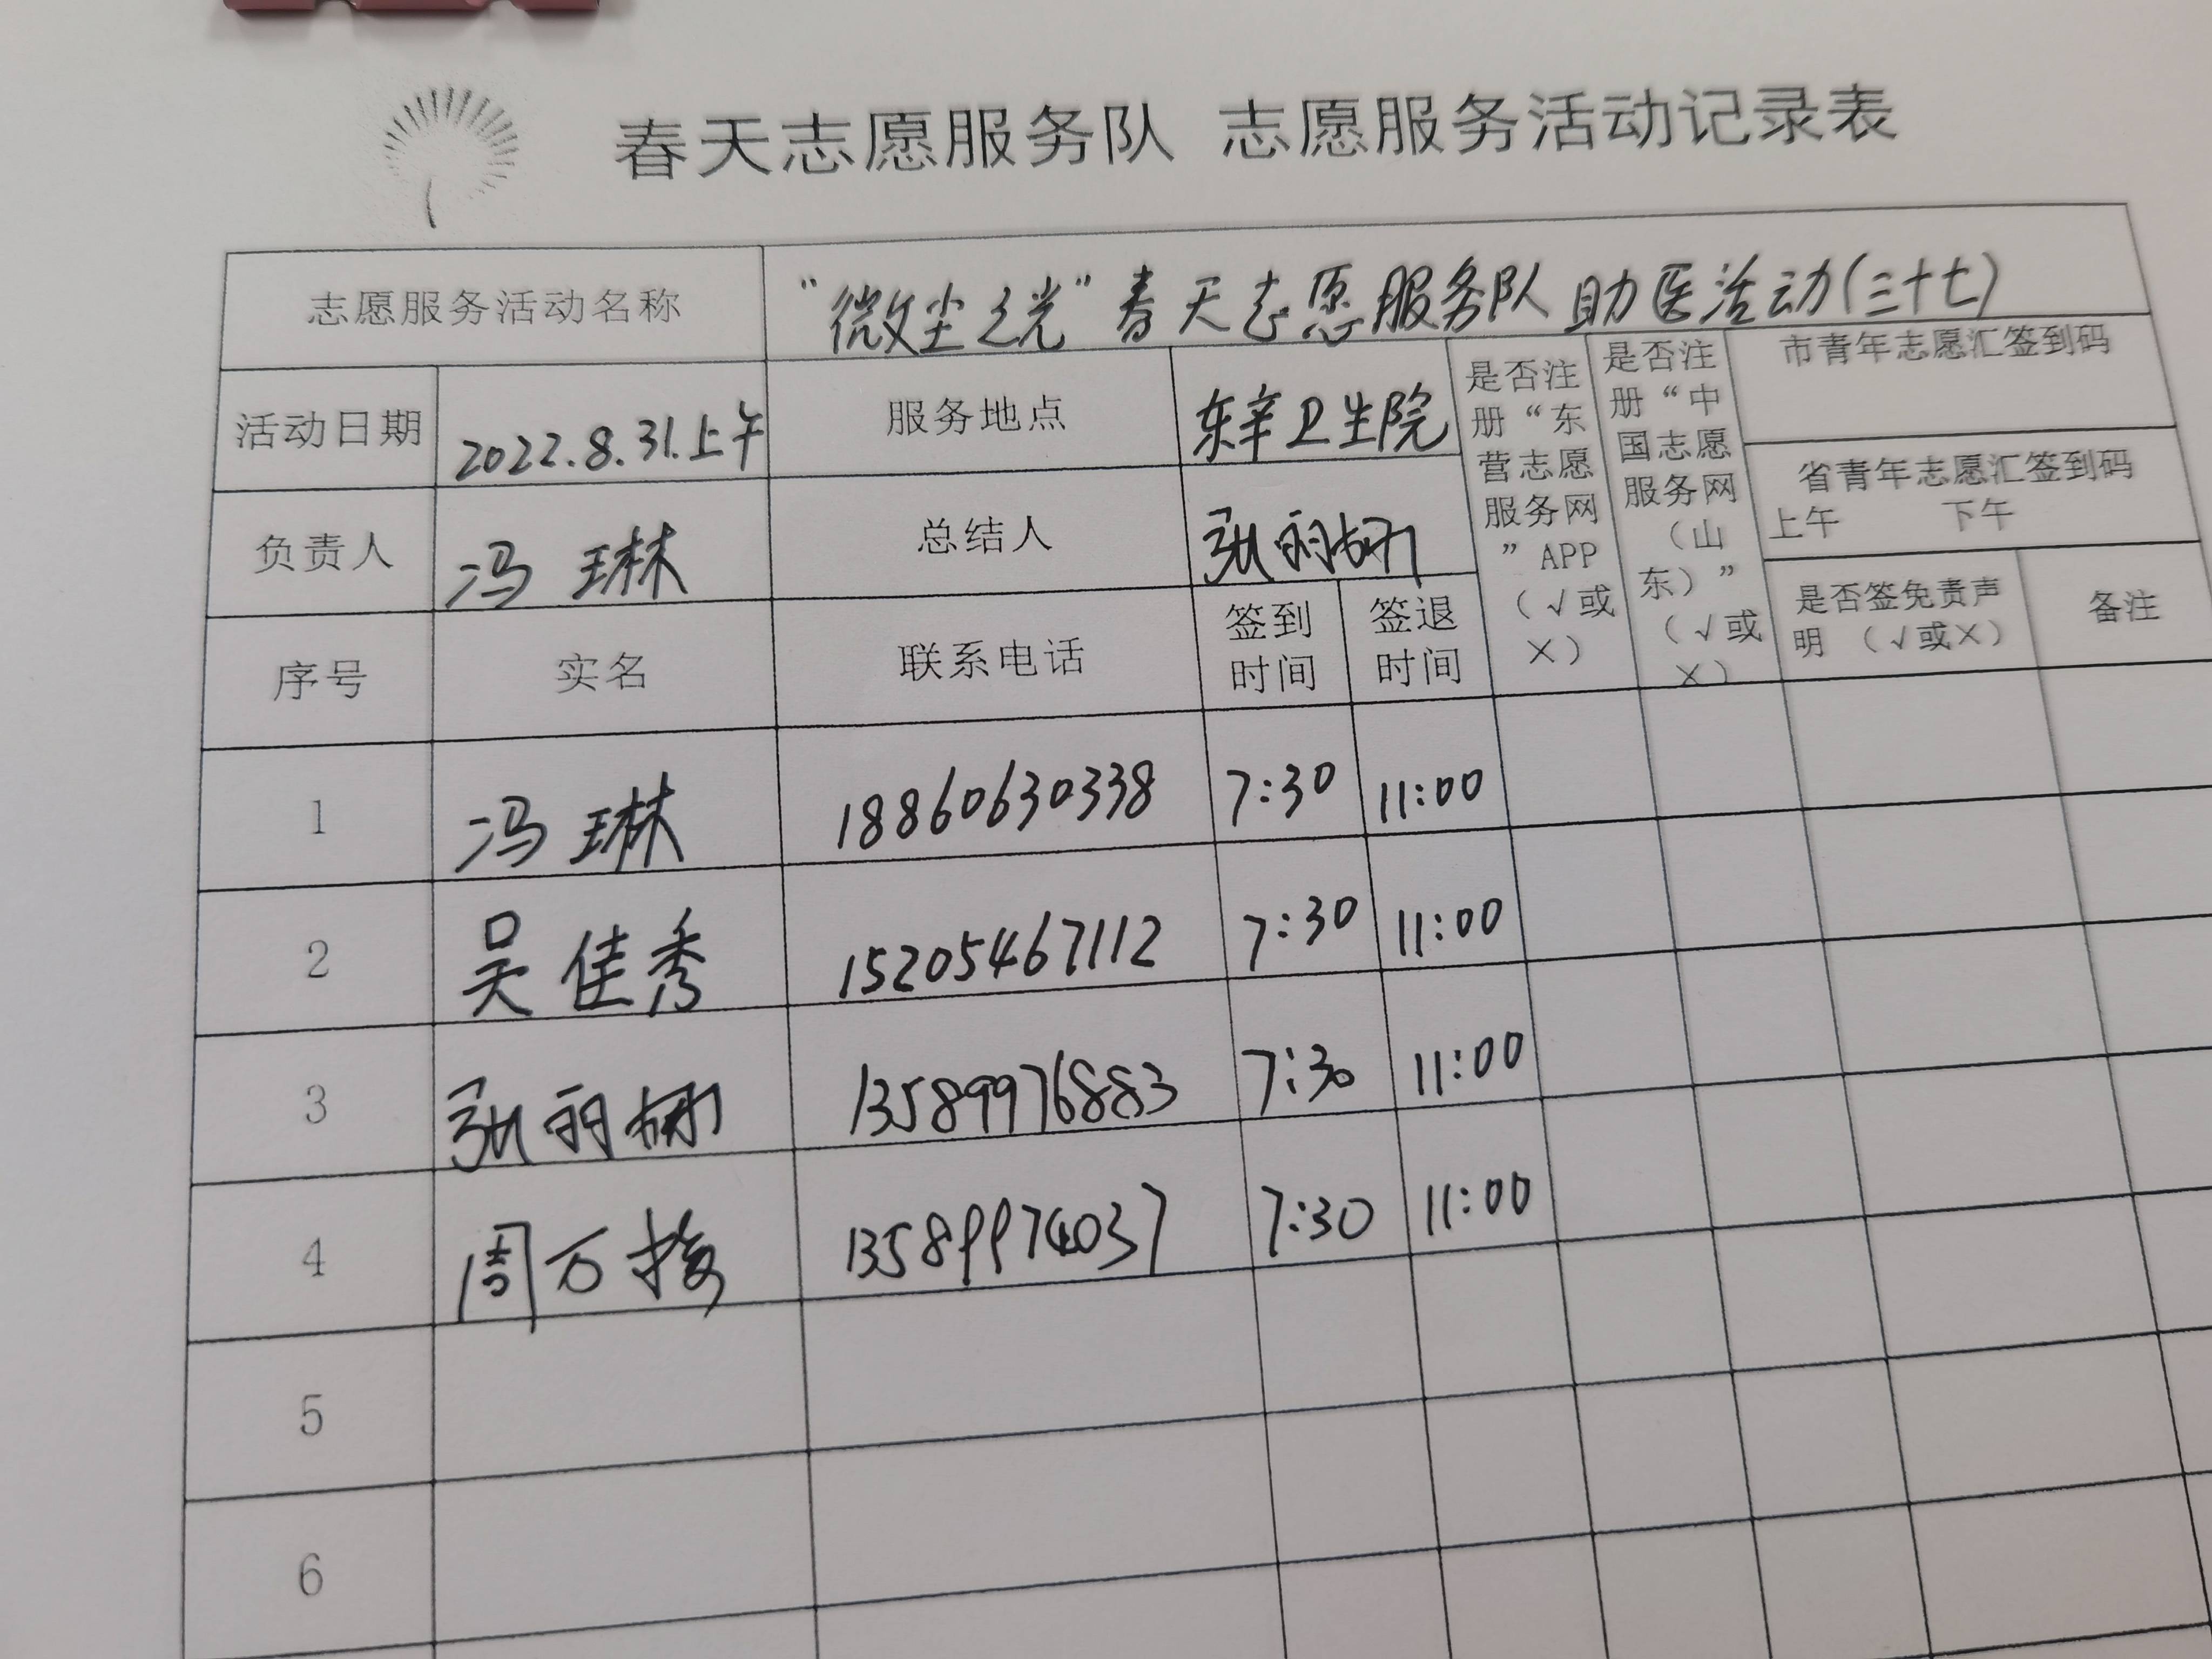 春天志愿服务队 志愿服务活动记录表
志愿服务活动名称 “微尘之光”春天志愿服务队助医活动(三十七)
活动日期 2022.8.31.上午 服务地点 东辛卫生院
是否注册“东营志愿服务网”APP（√或×）
是否注册“中国志愿服务网（山东）”（√或×）
市青年志愿汇签到码
省青年志愿汇签到码
上午 下午
负责人 冯琳 总结人 张丽娜
序号 实名 联系电话 签到时间 签退时间 是否签免责声明（√或×） 备注
1 冯琳 18860630338 7:30 11:00
2 吴佳秀 15205467112 7:30 11:00
3 张丽娜 13589976883 7:30 11:00
4 周万 13589974037 7:30 11:00
5
6